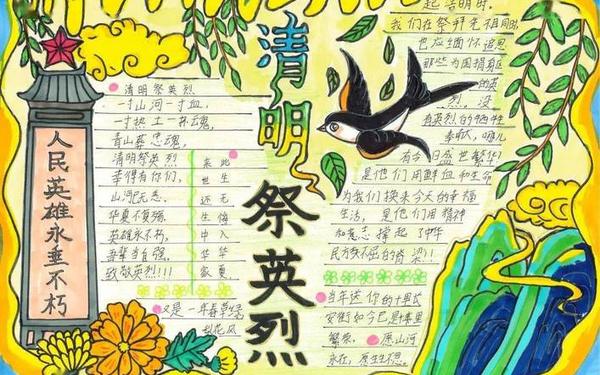 清明
祭英烈
人民英雄永垂不朽
清明祭英烈
一寸山河一寸血,
一寸热土一杯魂,
青山葬忠魂,
清明祭英烈
幸得有你们,
山河已无恙.
华夏不复殇,
英雄永不朽,
吾辈当自强.
致敬英烈!!!
此生无悔入华夏
来世还生中华家
又是一年春草绿
起清明时,
我们在祭拜先祖同时
也应缅怀追思
那些为国捐躯
的英
烈, 没
有英烈的牺牲
奉献, 哪儿
有今日盛世繁华!
是他们用鲜血和生命
为我们换来今天的幸福
生活, 是他们用精神
和意志撑起了中华
民族不屈的脊梁!!
当年送你的十里长
安街如今已是十里
繁荣. 愿山河
永在, 愿生生不息.